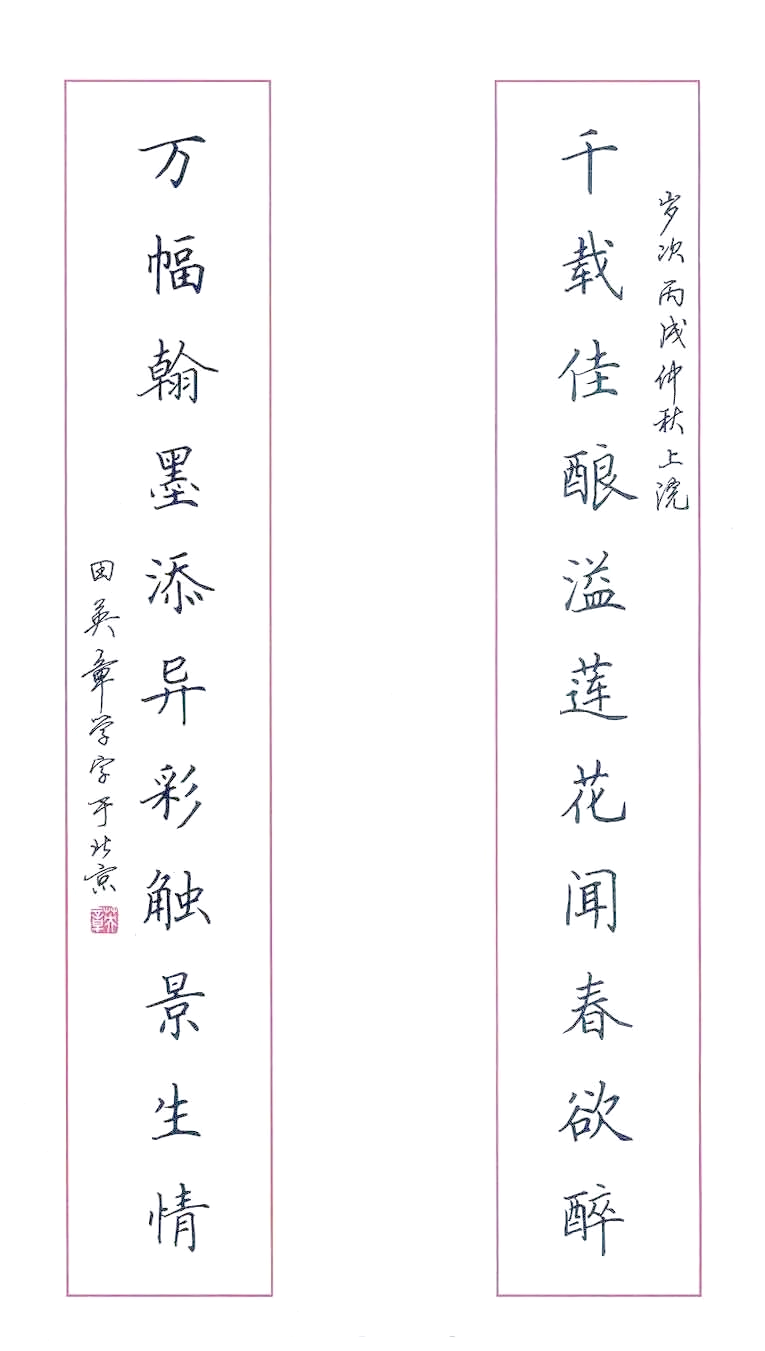 岁次丙戌仲秋上浣
千载佳酿溢莲花闻春欲醉
万幅翰墨添异彩触景生情
田英章学字于北京
英章